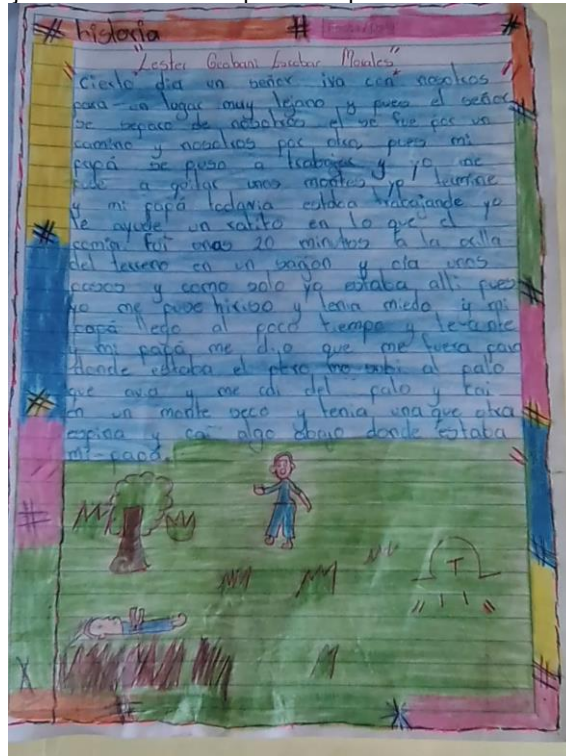 historia
"Lester Geobani Escobar Morales"
Cierto dia un señor iva con nosotros
para un lugar muy lejano y pues el señor
se separo de nosotros el se fue por un
camino y nosotros por otro, pues mi
papá se puso a trabajar y yo me
puse a quitar unos montes yo termine
y mi papá todavia estaba trabajando yo
le ayude un ratito en lo que el
comia, fui unos 20 minutos a la orilla
del terreno en un sanjon y oia unos
pasos y como solo yo estaba alli pues
yo me puse y tenia miedo y mi
papá llego al poco tiempo y
mi papá me dijo que me fuera para
donde estaba el pero me subi al palo
que avia y me cai del palo y cai
en un monte seco y tenia una que otra
espina y cai algo abajo donde estaba
mi papá.
T